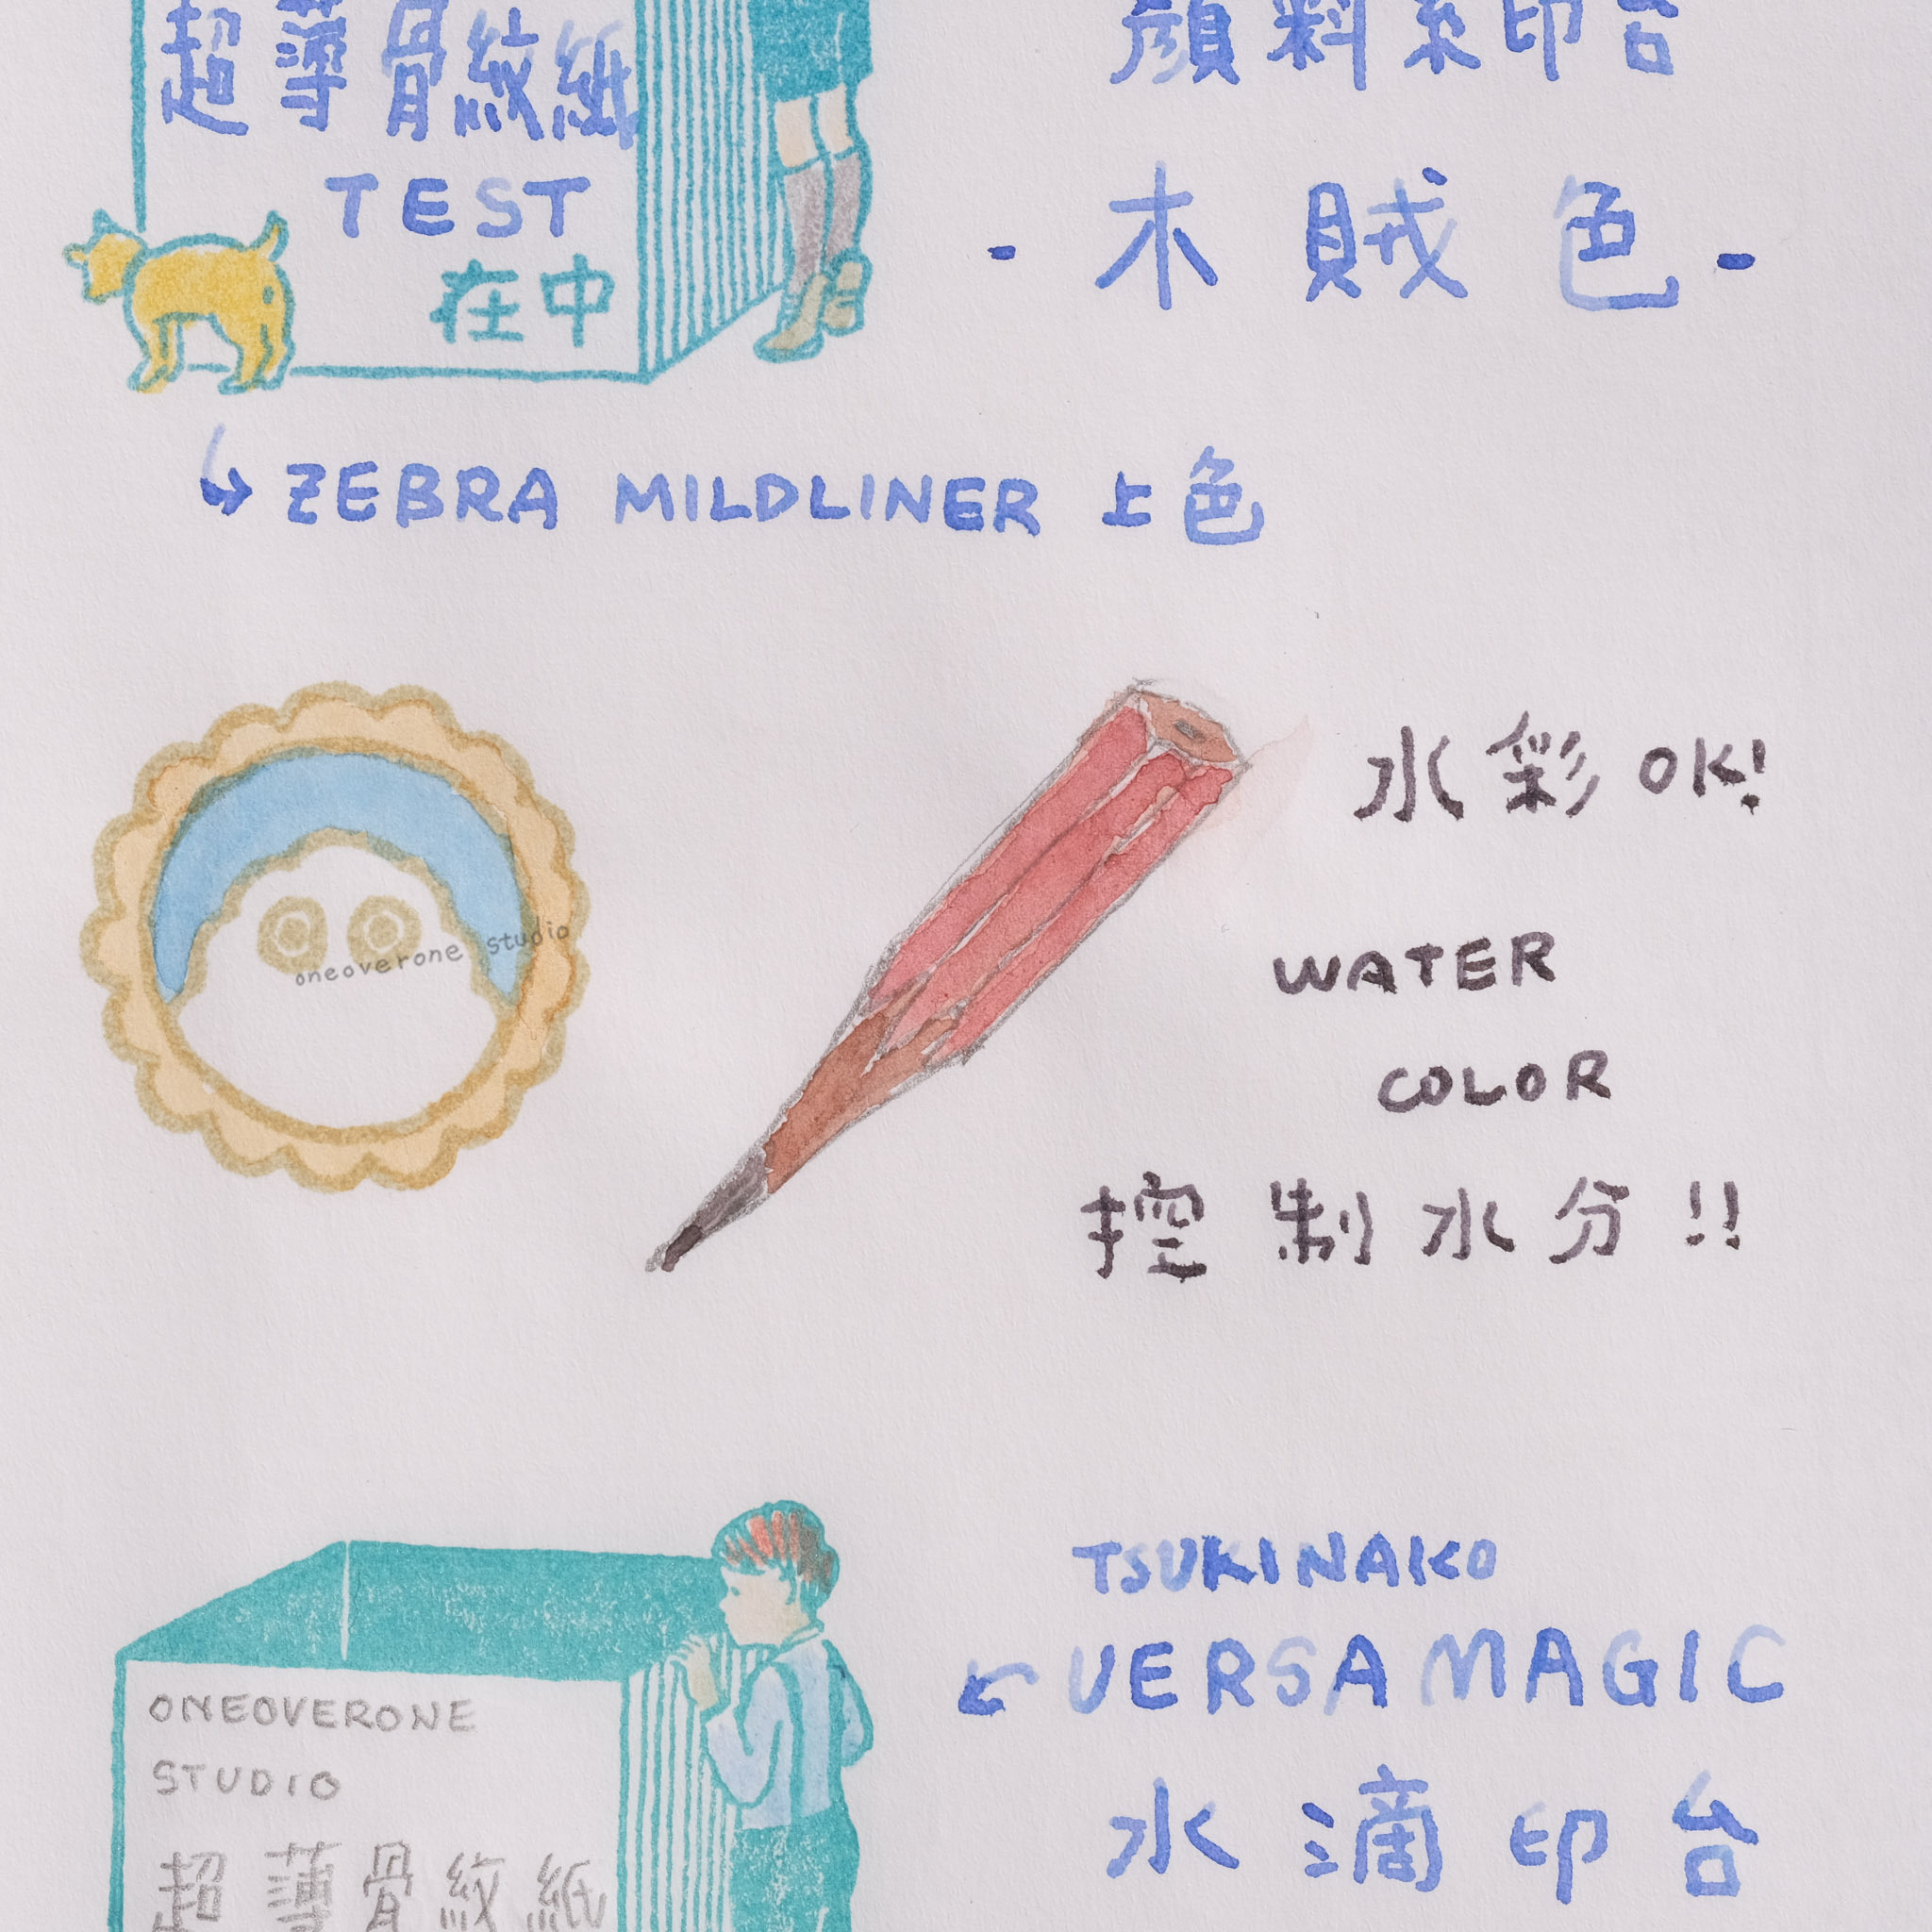 超薄骨紋紙
TEST
在中
顏料系印台
- 木賊色 -
ZEBRA MILDLINER 上色
oneoverone studio
水彩 OK!
WATER
COLOR
控制水分!!
TSUKINAKO
VERSAMAGIC
水滴印台
ONEOVERONE
STUDIO
超薄骨紋紙